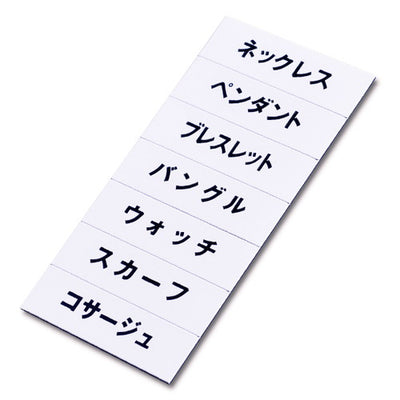 ネックレス
ペンダント
ブレスレット
バングル
ウォッチ
スカーフ
コサージュ